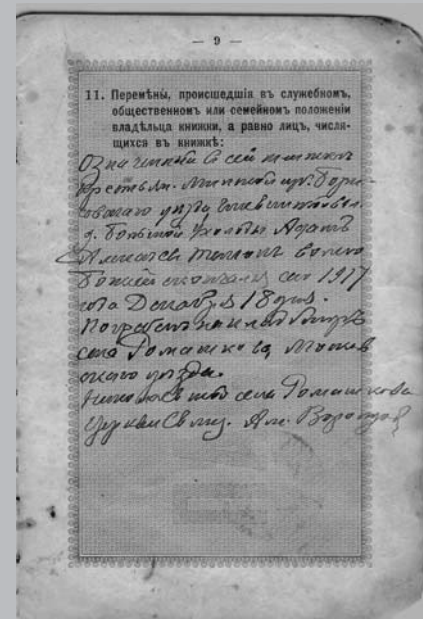 — 9 —
11. Перемѣны, происшедшія въ служебномъ,
общественномъ или семейномъ положеніи
владѣльца книжки, а равно лицъ, числя-
щихся въ книжкѣ:
Означенный въ сей книжкѣ
Крестьян. Минской губ. Бори-
совскаго уѣзда
д. Большой Ухолоды Адамъ
волею
Божіей скончался сего 1917
года Декабря 18 дня.
Погребенъ на кладбищѣ
села Ромашкова, Москов
скаго уѣзда.
Николаевской села Ромашкова
Церкви Свящ.